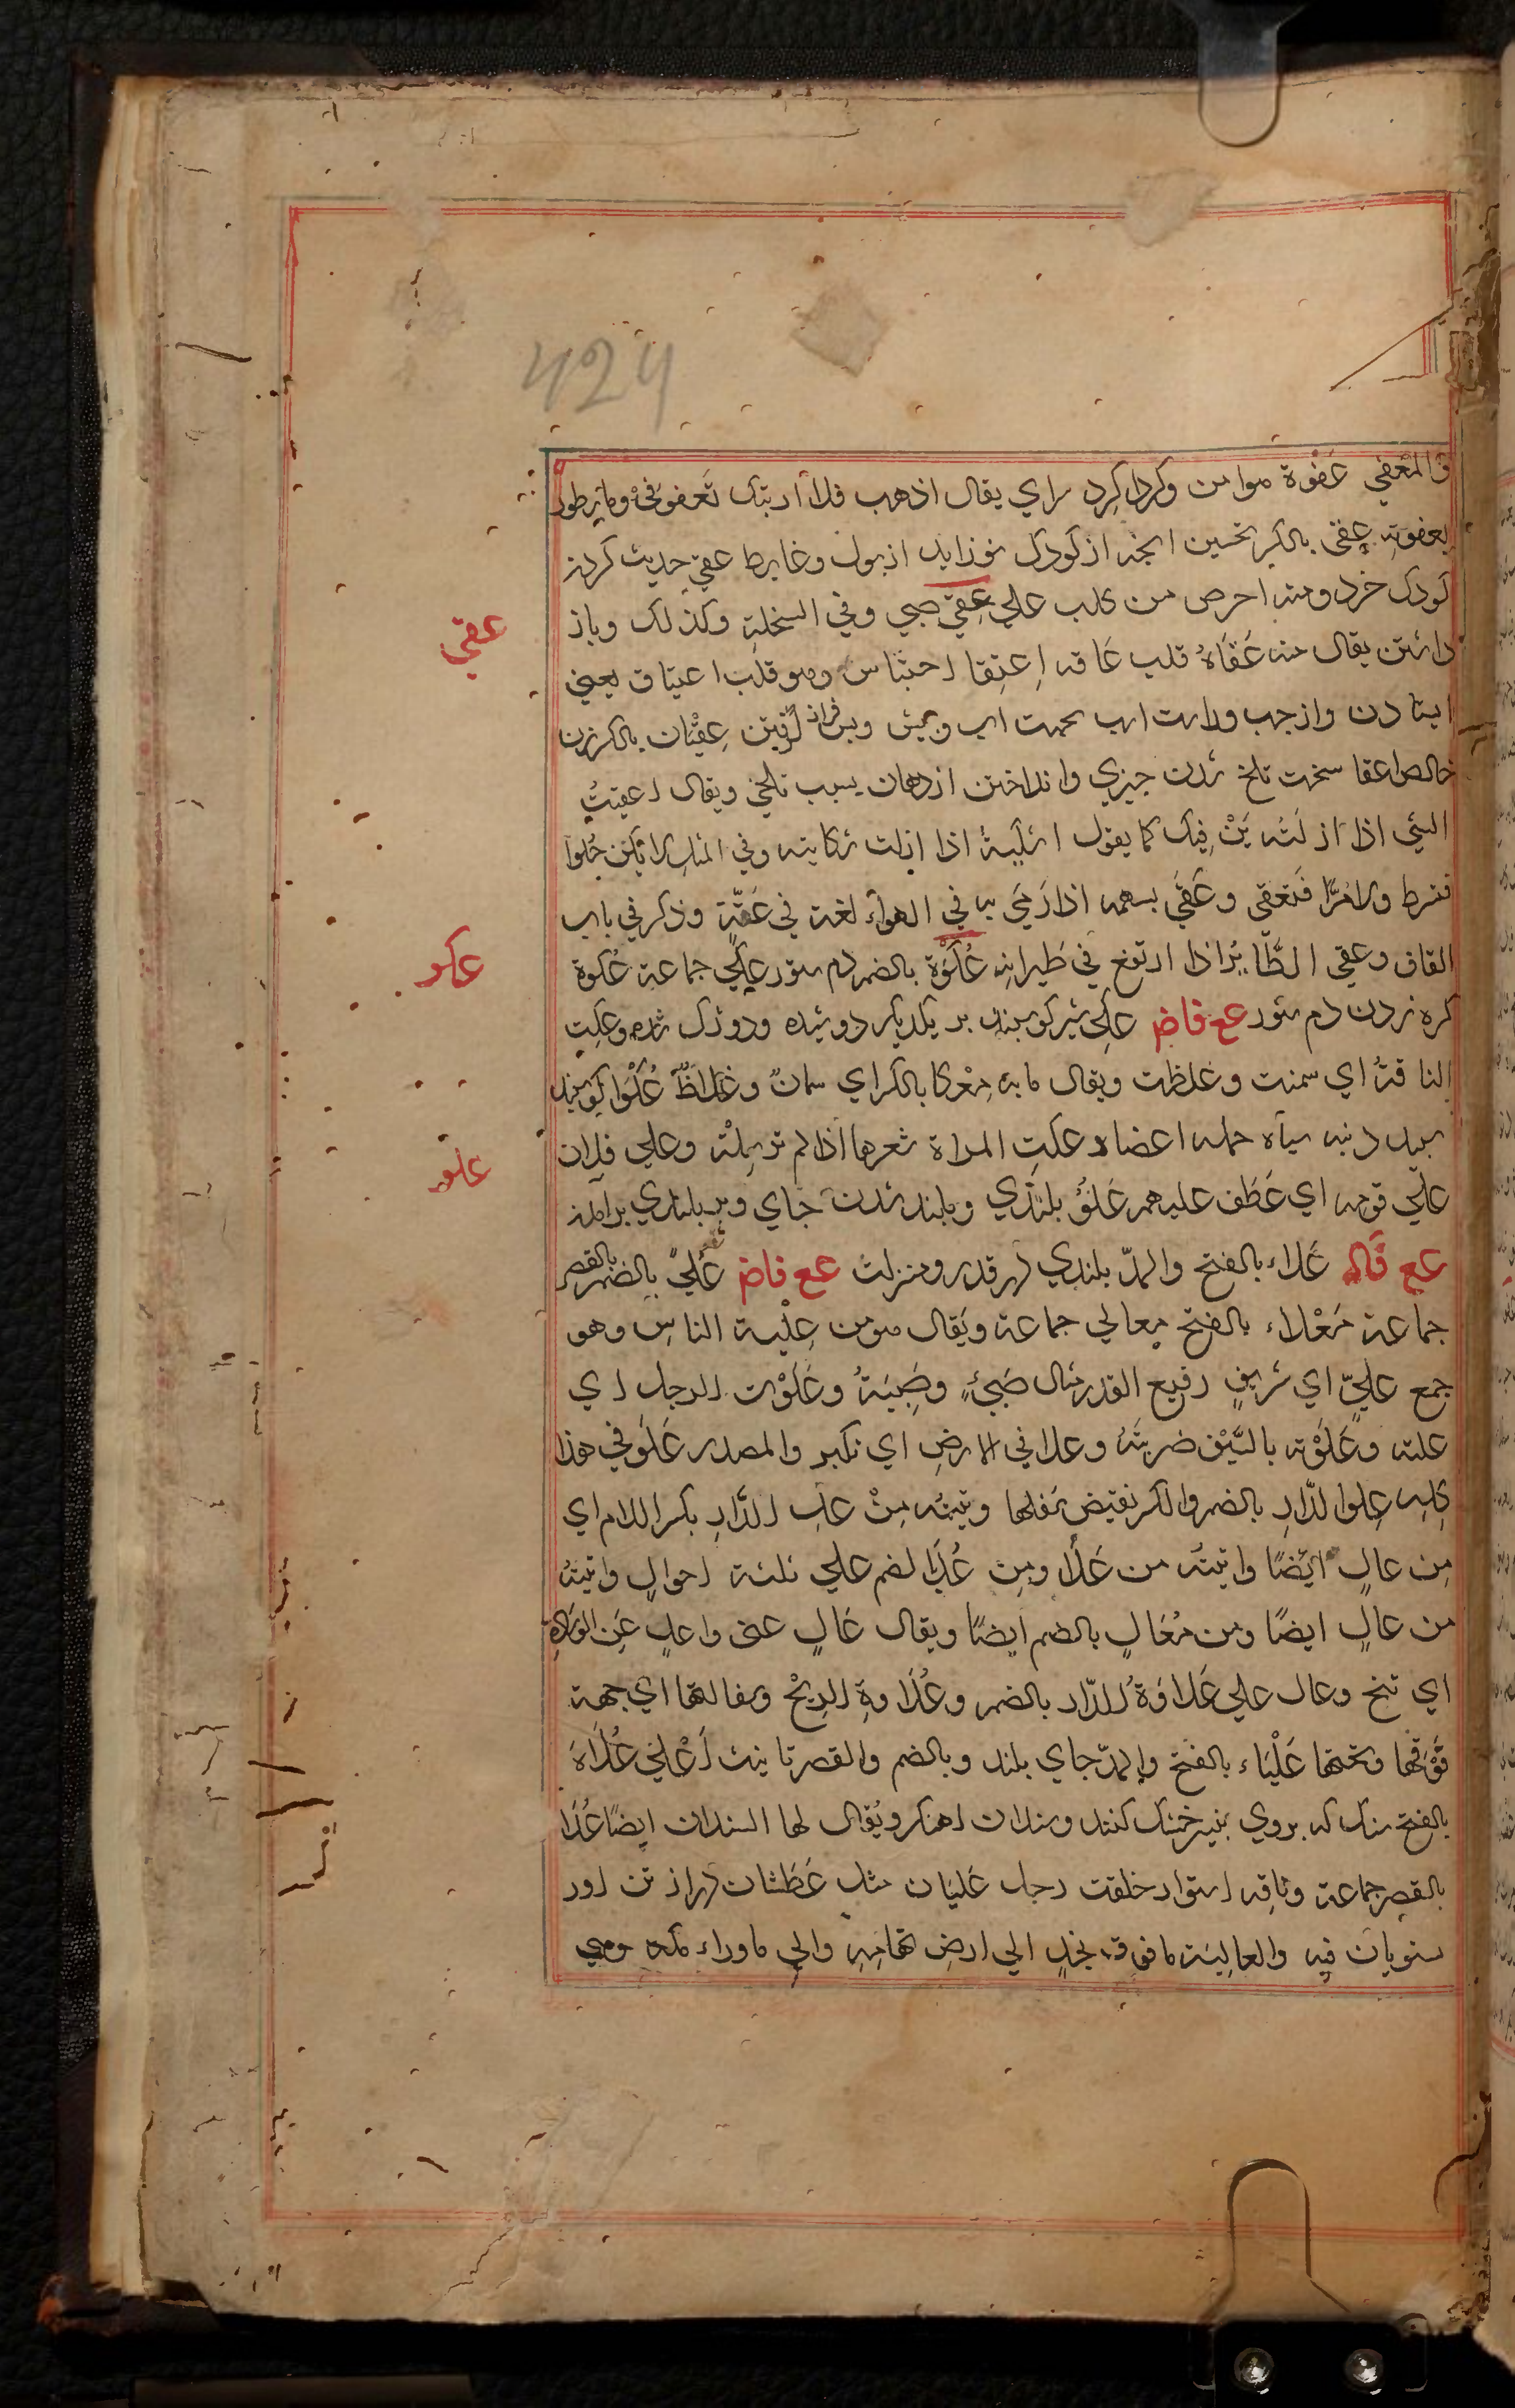 424
والمعفي عَفْوة موا من وكرداكرد سراي يقال اذهب فلا ارتبك تَعفو
بعفوتِه عِقي بالكسر نخستين انجه از كودك نوزايد از بول وغايط عقي حديث كردن
كودك خرد ومنه احرص من كلب علي عِقي صبي وفي السخلة وكذلك وباز
عقي
داشتن يقال منه عَقَاهُ قلب عَاقه اِعتِقا احتباس وهو قلب اعتياق يعني
ايتادن واز جب وراست اب عِقْيَان بالكسر زر
خالص اعقا سخت تلخ شدن جيزي وانداختن از دهان بسبب تلخي ويقال اعقيتُ
الشي اذا ازلته مِنْ فِيك كما يقول اشكيتهُ اذا ازلت شكايته وفي المثل لا تكن حُلوا
فتسرط ولا مُرًّا فتعقي وعَقّي بسهمه اذا رَمَي به في الهواء لغة في عَقّه وذكر في باب
القاف وعقي الطَّايرُ اذا ارتفع في طَيرانِه عُكْوَة بالضم دم ستور عُكي جماعة عَكوة
عكو
كره زدن دم ستور عع فاض عَكِي شير كوسبند بر يكديكر دوشيده ودوزك شده وعكت
الناقةُ اي سمنت وغلظت ويقال مائة مِعْكا بالكسر اي سمانٌ وغلاظٌ عُكْوَا كوسبند
سبيد دنبه سياه جمله اعضا وعكتِ المراة شعرها اذا لم ترسِلْه وعلي فلان
علو
علي قومه اي عَطَف عليهم عَلَوُّ بلندي وبلند شدن جاي وبر بلندي برامدن
عع قَاله عَلاء بالفتح والمدّ بلندي در قدر ومنزلت عع فاض عُلَيً بالضم بالقصر
جماعة مَعْلاء بالفتح معالي جماعة ويقال هو من عِلْية الناسِ وهو
جمع عليٍّ اي شريفٍ رفيع القدر مثال صَبيٍّ وصِبيَةُ وعَلَوْت الرجل اي
علته وعَلَوْته بالسَّيْف ضربتُهُ وعلا في الارضِ اي تكبر والمصدر عَلَو في هذا
كلِه عِلوا لدّارِ بالضم والكسر نقيض سفلها وتيتُه مِنْ علِ الدَّارِ بكسر اللام اي
مِن عالٍ ايضًا واتيتُه من عَلَا ومِن عُلَا لضم علي ثلثة احوالٍ واتيتُه
من عالٍ ايضًا ومن مُعَالٍ بالضم ايضًا ويقال عَالِ عني واعلِ عَنِ الوِسَادِة
اي تنح وعال علي عَلاوَةُ الدّار بالضم وعُلَاوةِ الرِيْح وسفالتها اي جهة
فَوْقها وتحتها عَلْيَاء بالفَتح والمدّ جاي بلند وبالضم والقصر تانيث اَعْلي عُلَاةَ
بالفتح سنك كه بروي بنير خشك كنند وسندان اهنكر ويُقال لها السندان ايضًا عُلَا
بالقصر جماعة وناقه استوار خلقت رجل عَليَان مثل عَطَشان دراز تن اور
ستويان فيه والعالِيَة ما فوق نجدٍ الي ارضِ تهامِةِ والي ما وراء مكه وهي